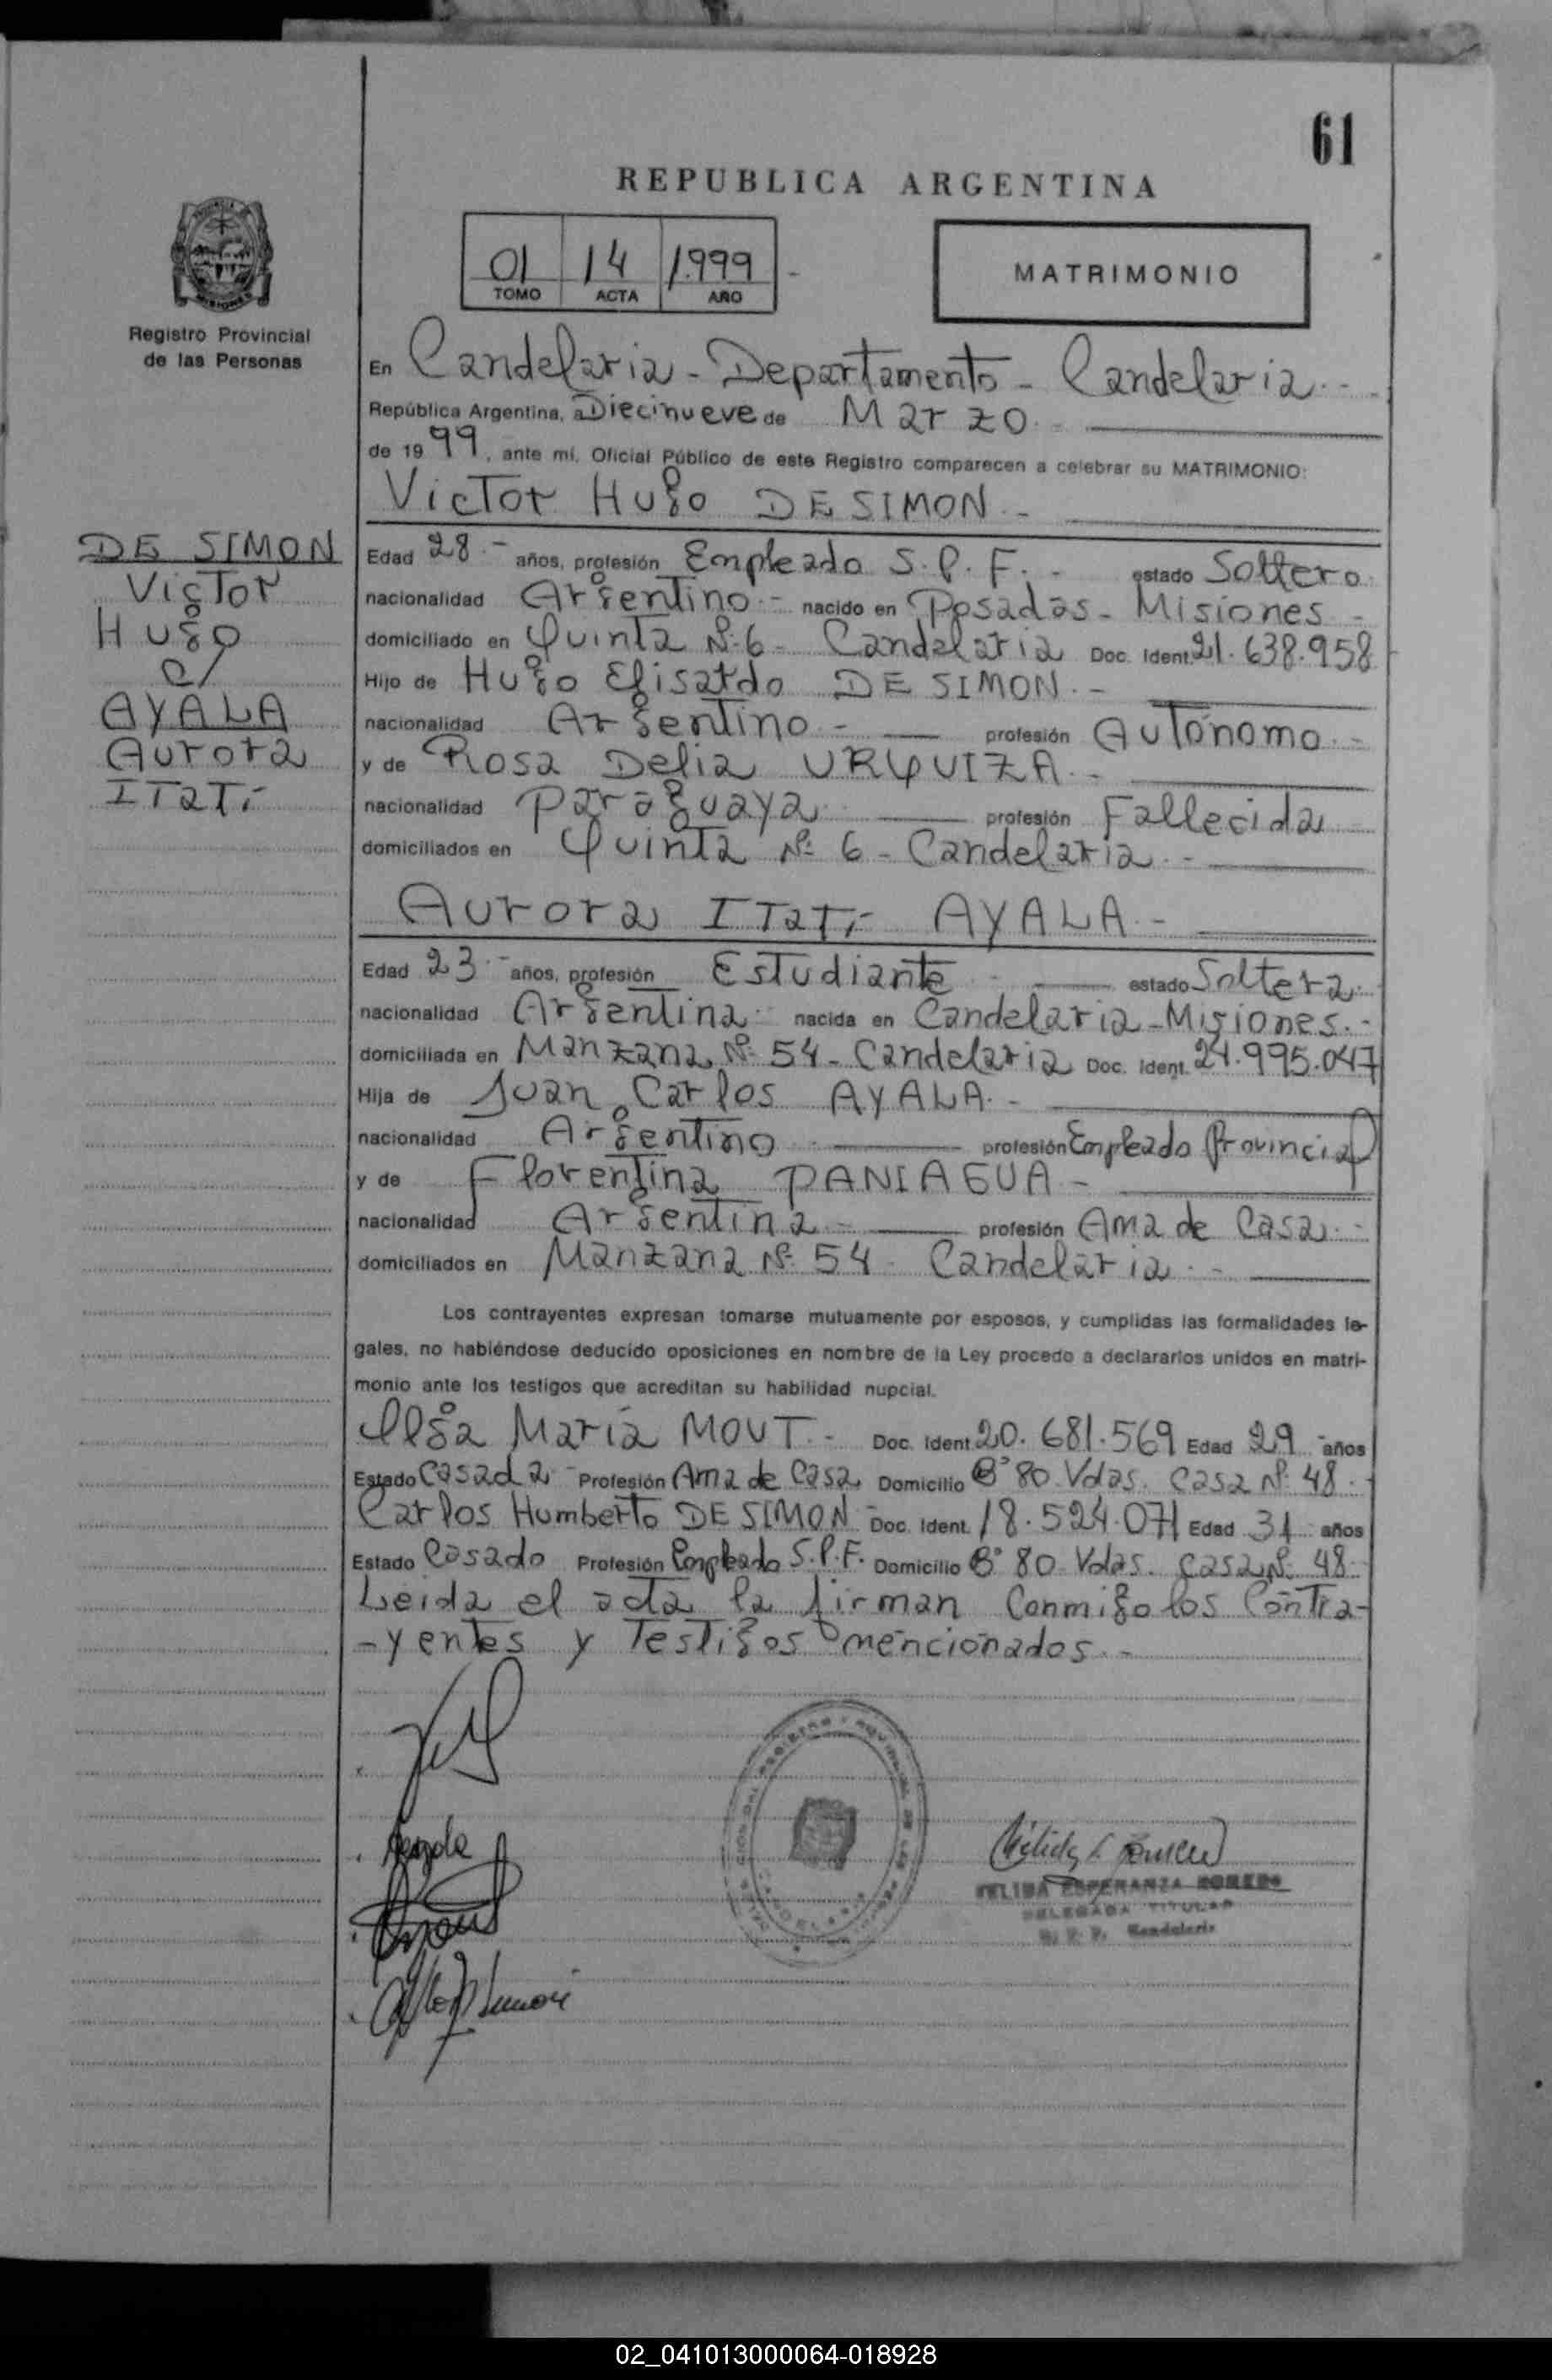 61
REPUBLICA ARGENTINA
01 14 1.999
TOMO ACTA AÑO
MATRIMONIO
Registro Provincial
de las Personas
DE SIMON
Victor
Hugo
c/
AYALA
Aurora
ITatí
En Candelaria - Departamento - Candelaria.-
República Argentina, a Diecinueve de Marzo.-
de 1999, ante mí, Oficial Público de este Registro comparecen a celebrar su MATRIMONIO:
Victor Hugo DE SIMON.-
Edad 28.- años, profesión Empleado S.P.F.- estado Soltero
nacionalidad Argentino.- nacido en Posadas - Misiones -
domiciliado en Quinta Nº 6 - Candelaria Doc. Ident. 21.638.958
Hijo de Hugo Elisardo DE SIMON.-
nacionalidad Argentino.- profesión Autónomo.-
y de Rosa Delia URQUIZA.-
nacionalidad Paraguaya profesión Fallecida
domiciliados en Quinta Nº 6 - Candelaria.-
Aurora ITatí AYALA.-
Edad 23.- años, profesión Estudiante estado Soltera.
nacionalidad Argentina nacida en Candelaria - Misiones.-
domiciliada en Manzana Nº 54 - Candelaria Doc. Ident. 24.995.047
Hija de Juan Carlos AYALA.-
nacionalidad Argentino profesión Empleado Provincial
y de Florentina PANIAGUA -
nacionalidad Argentina.- profesión Ama de Casa.-
domiciliados en Manzana Nº 54 - Candelaria.-
Los contrayentes expresan tomarse mutuamente por esposos, y cumplidas las formalidades le-
gales, no habiéndose deducido oposiciones en nombre de la Ley procedo a declararlos unidos en matri-
monio ante los testigos que acreditan su habilidad nupcial.
Olga María MOUT.- Doc. Ident. 20.681.569 Edad 29 años
Estado Casada - Profesión Ama de Casa Domicilio Bº 80 Vdas. Casa Nº 48.-
Carlos Humberto DE SIMON - Doc. Ident. 18.524.071 Edad 31 años
Estado Casado Profesión Empleado S.P.F. Domicilio Bº 80 Vdas. Casa Nº 48
Leida el acta la firman Conmigo los Contra-
-yentes y Testigos mencionados.-
ESPERANZA ROMERO
DELEGADA TITULAR
Candelaria
02_041013000064-018928